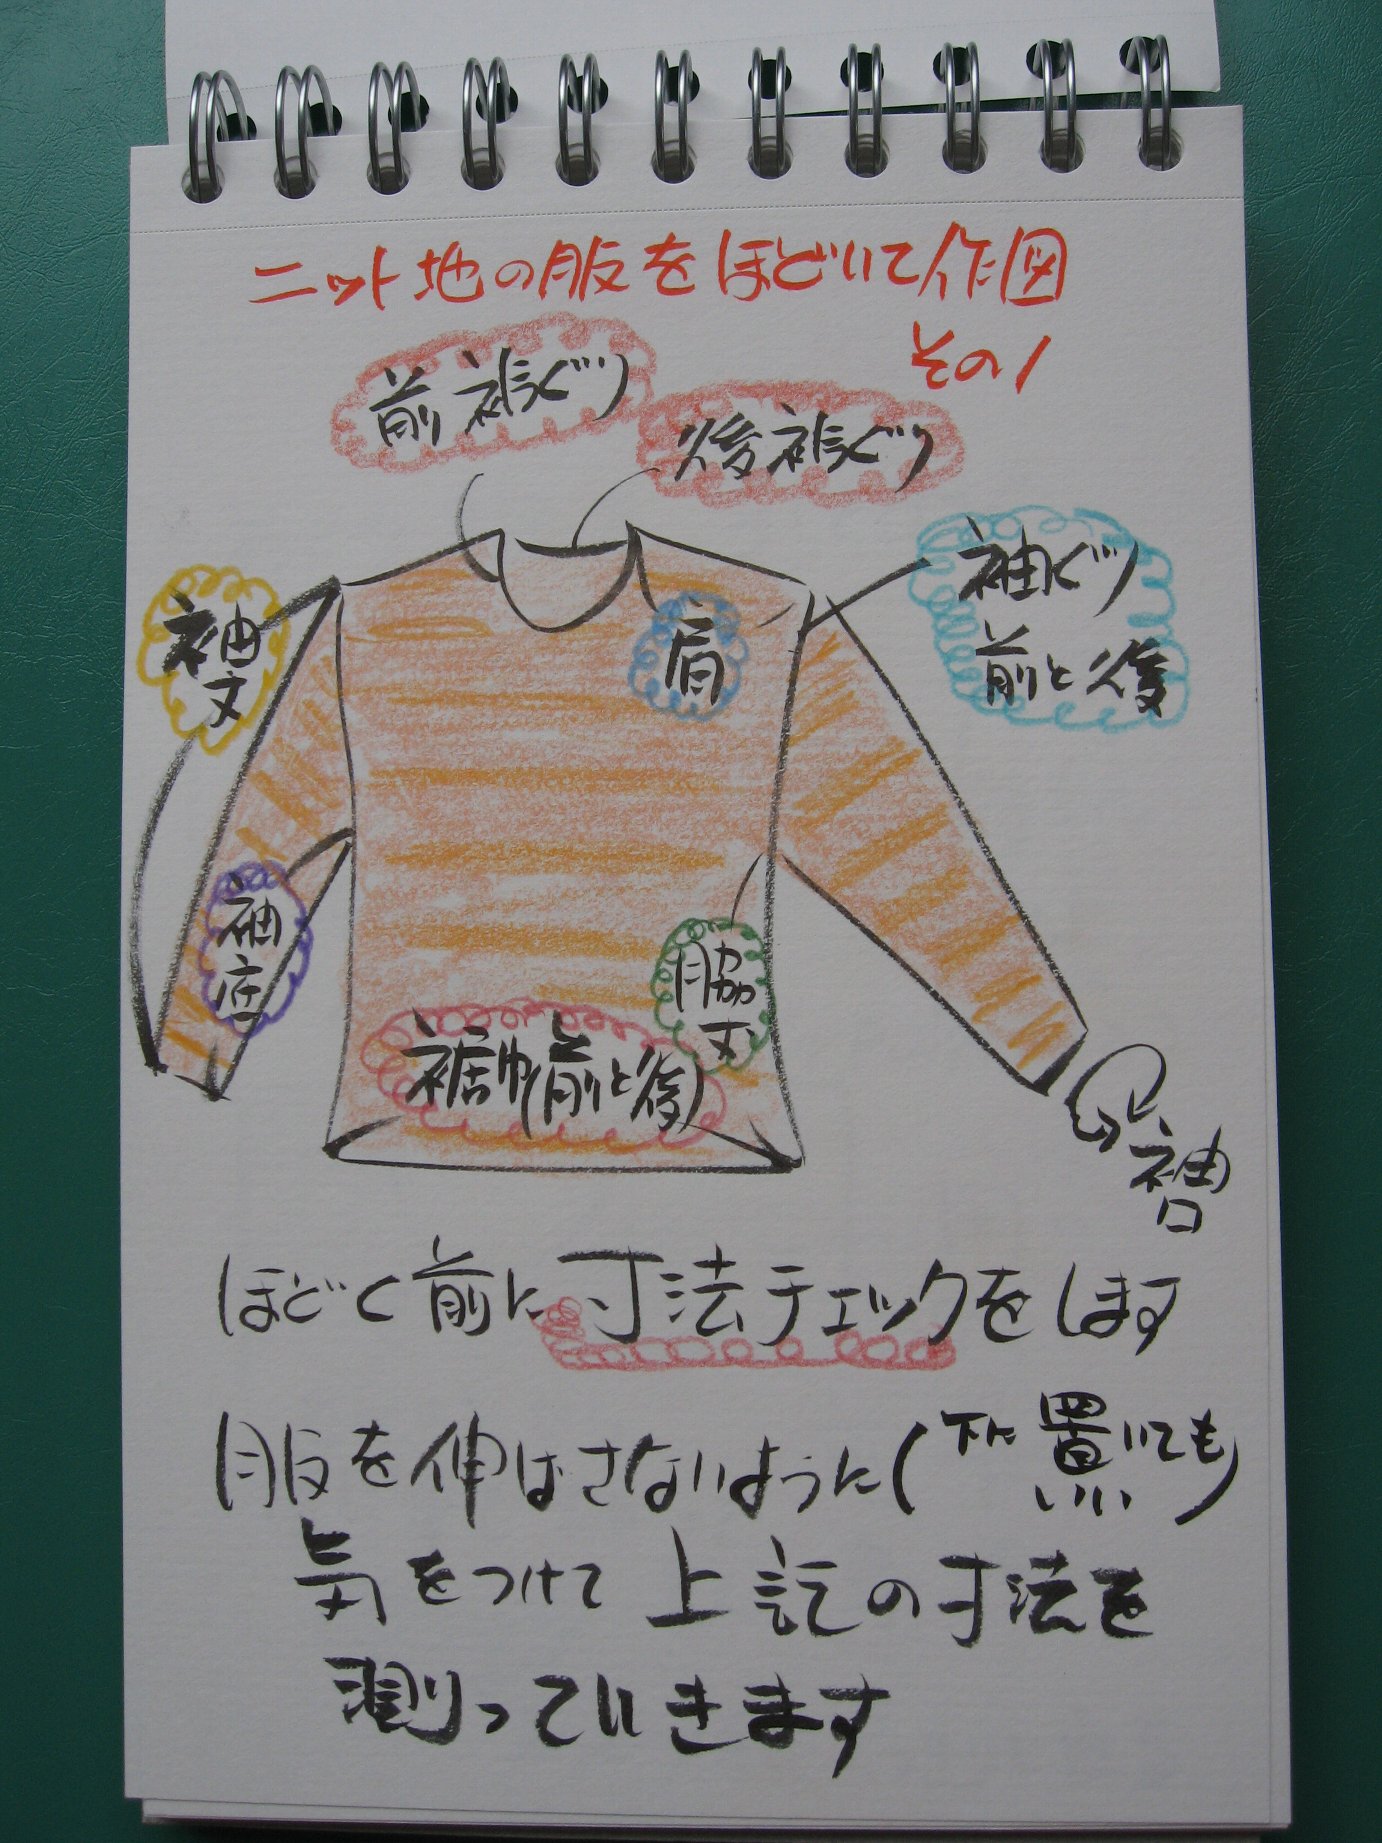 ニット地の服をほどいて作図
その1
前衿ぐり
後衿ぐり
袖ぐり
前と後
袖
丈
肩
袖
底
脇
丈
裾巾(前と後)
袖
口
ほどく前に寸法チェックをします
服を伸ばさないように(下に置いてもいい)
気をつけて上記の寸法を
測っていきます